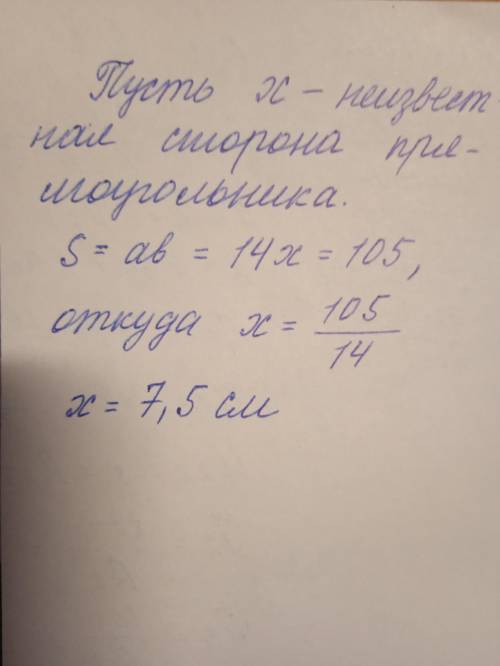 Пусть x - неизвест-
ная сторона пря-
моугольника.
S = ab = 14x = 105,
откуда x = 105/14
x = 7,5 см